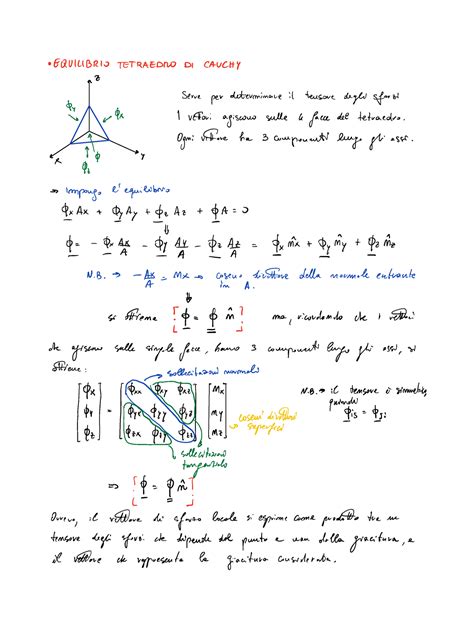 • EQUILIBRIO TETRAEDRO DI CAUCHY
z
ϕy
ϕx
ϕ
x
y
ϕz
Serve per determinare il tensore degli sforzi
I vettori agiscono sulle 4 facce del tetraedro.
Ogni vettore ha 3 componenti lungo gli assi.
⇒ impongo l'equilibrio
ϕx Ax + ϕy Ay + ϕz Az + ϕ A = 0
⇓
ϕ = - ϕx Ax/A - ϕy Ay/A - ϕz Az/A = ϕx m̂x + ϕy m̂y + ϕz m̂z
N.B. → - Ax/A = mx → coseno direttore della normale entrante in A.
⇓
si ottiene [ ϕ = ϕ m̂ ] ma, ricordando che i vettori
che agiscono sulle singole facce, hanno 3 componenti lungo gli assi, si
ottiene:
sollecitazioni normali
[ϕx ϕy ϕz] = [ϕxx ϕxy ϕxz ϕyx ϕyy ϕyz ϕzx ϕzy ϕzz] [mx my mz]
coseni direttori superficie
sollecitazioni tangenziali
N.B. → il tensore è simmetrico quindi
ϕij = ϕji
⇒ [ ϕ = ϕ n̂ ]
Ovvero, il vettore di sforzo locale si esprime come prodotto tra un
tensore degli sforzi che dipende dal punto e non dalla giacitura, e
il vettore che rappresenta la giacitura considerata.